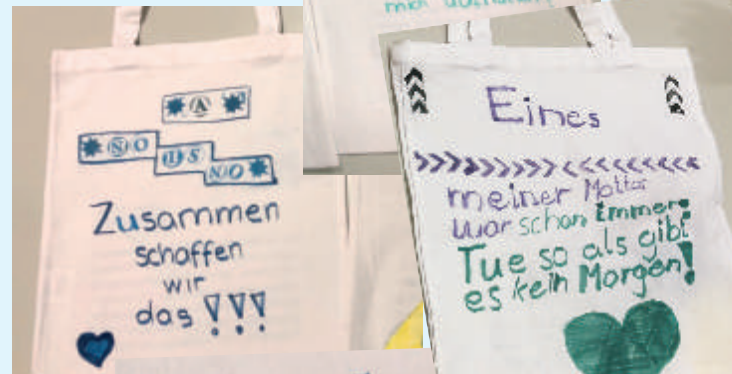 mich
A
NO
US
NO
Zusammen
schaffen
wir
das !!!
Eines
>>>>>>>>><<<<<<<<
meiner Mottos
war schon immer:
Tue so als gibt
es kein Morgen!